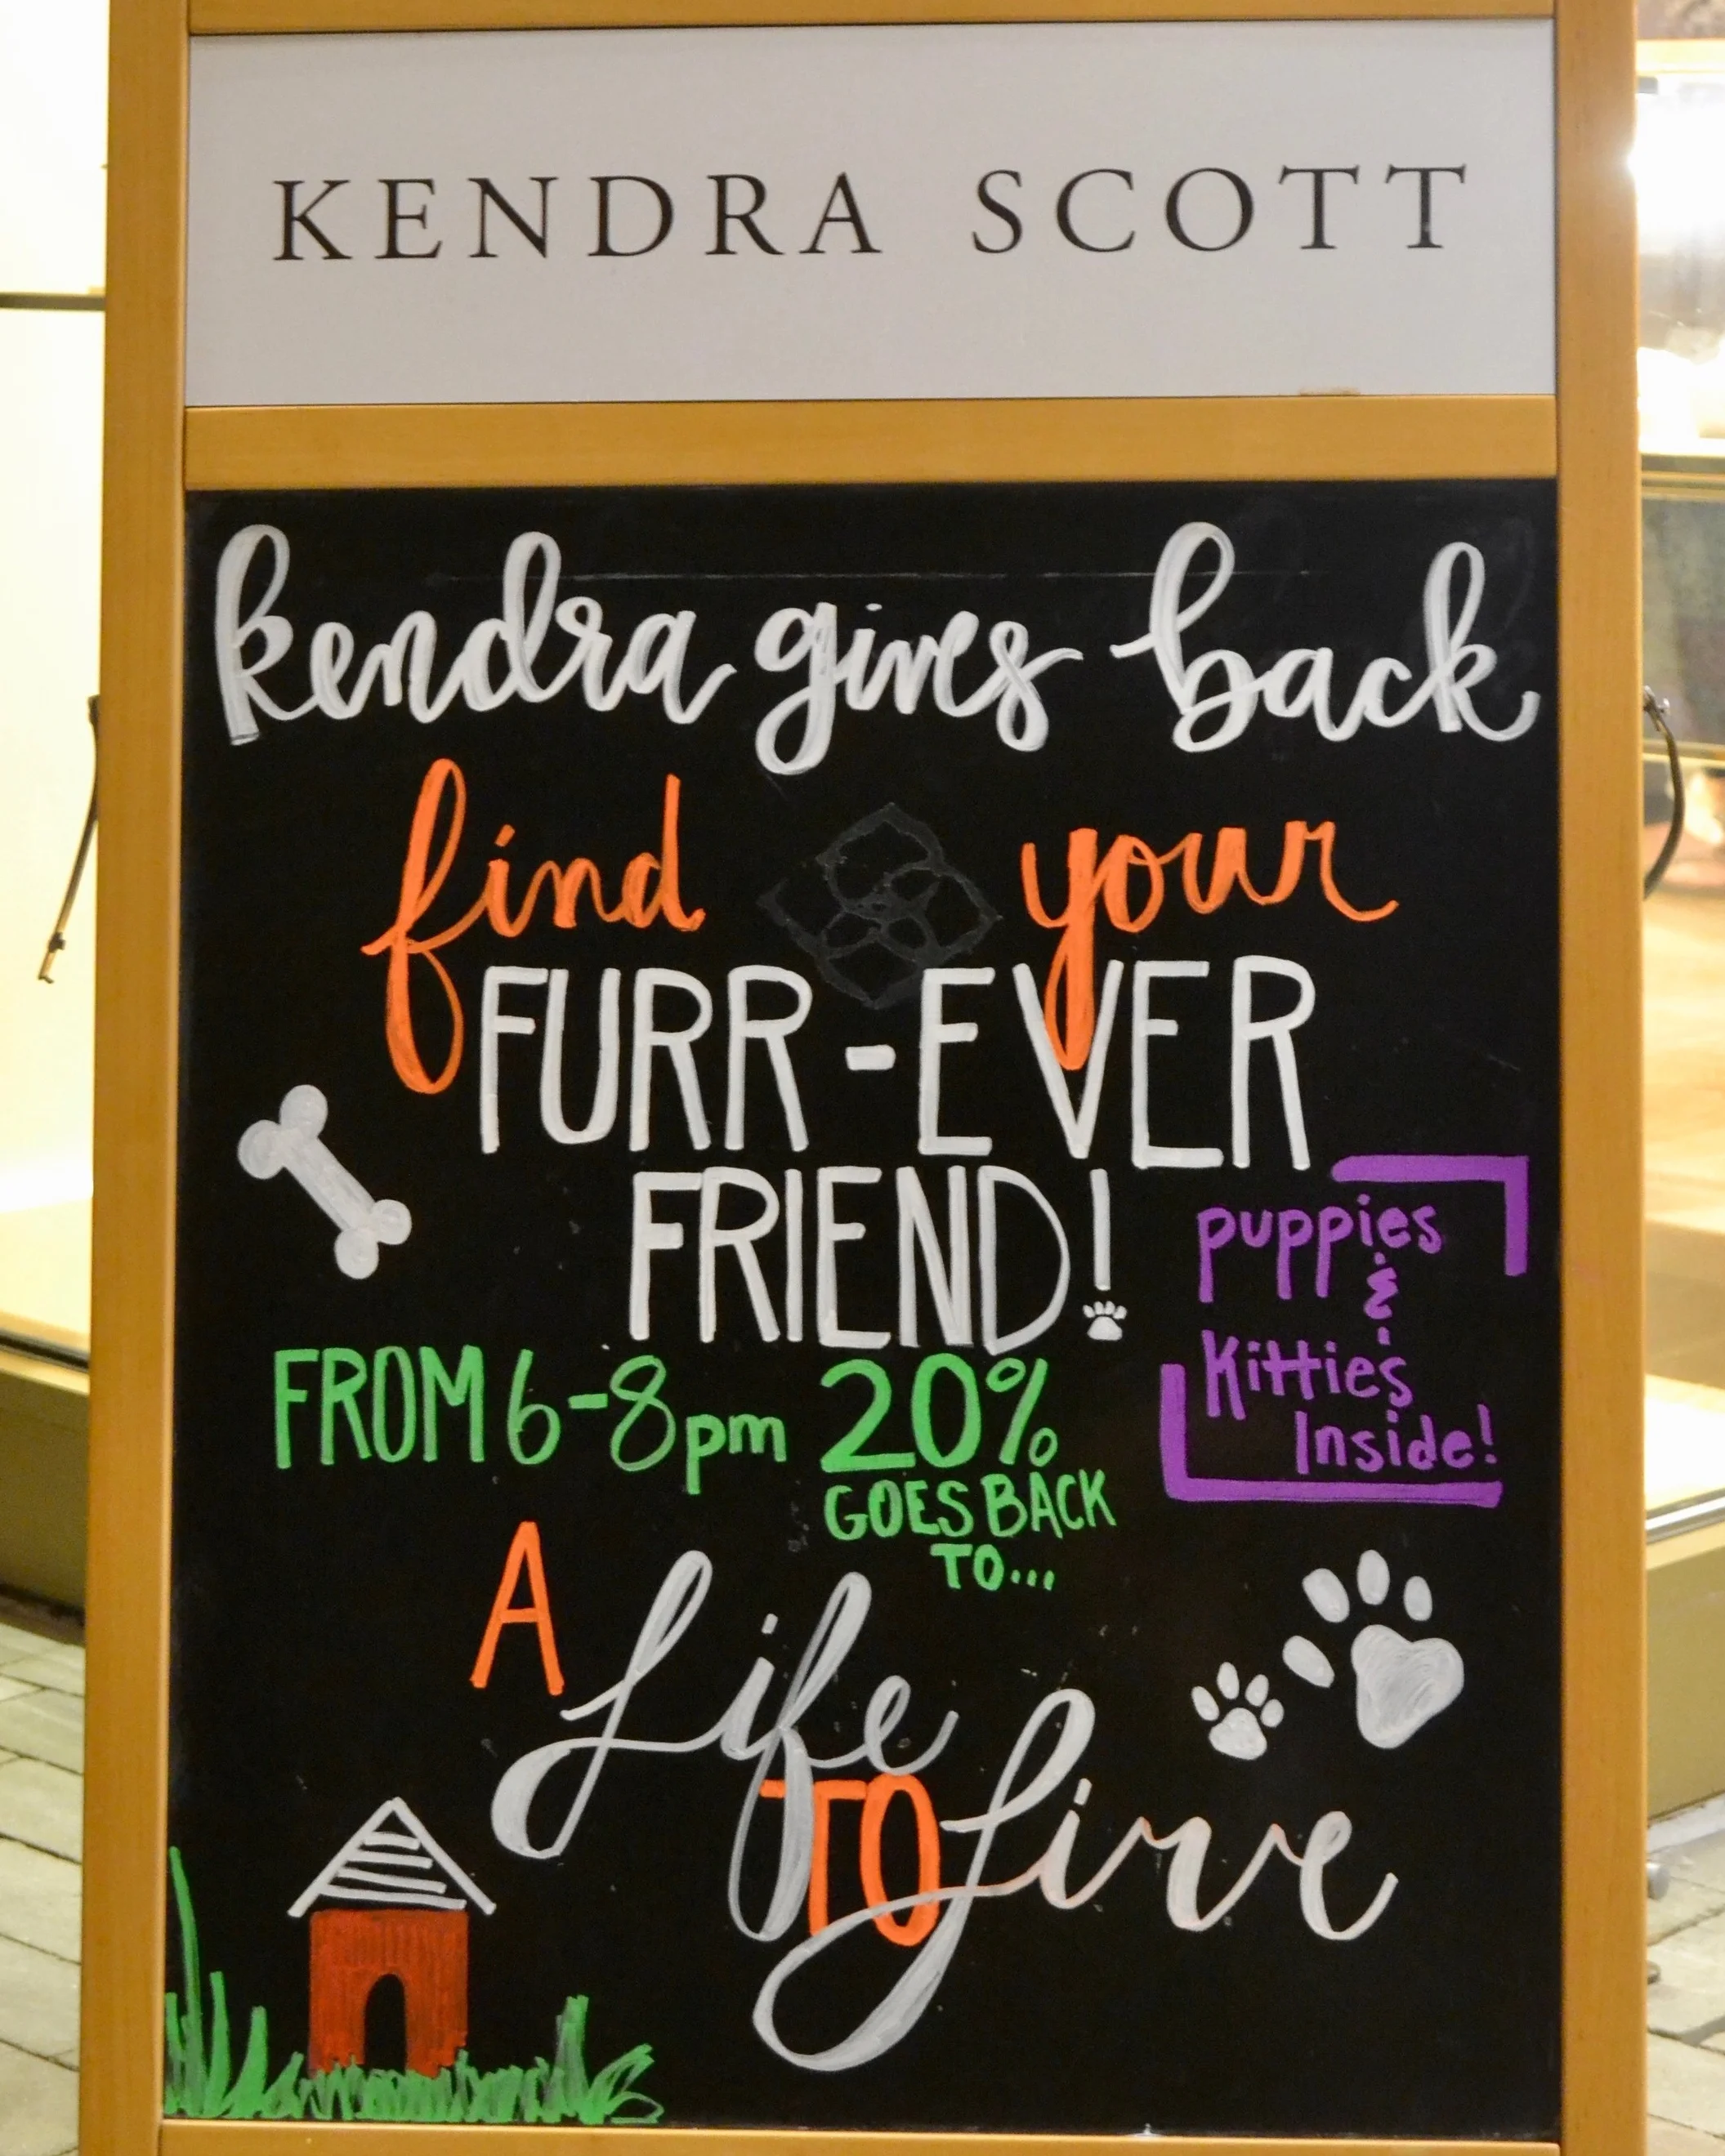 KENDRA SCOTT
kendra gives back
find your
FURR-EVER
FRIEND!
puppies
&
Kitties
Inside!
FROM 6-8pm 20%
GOES BACK
TO...
A Life
TO Live